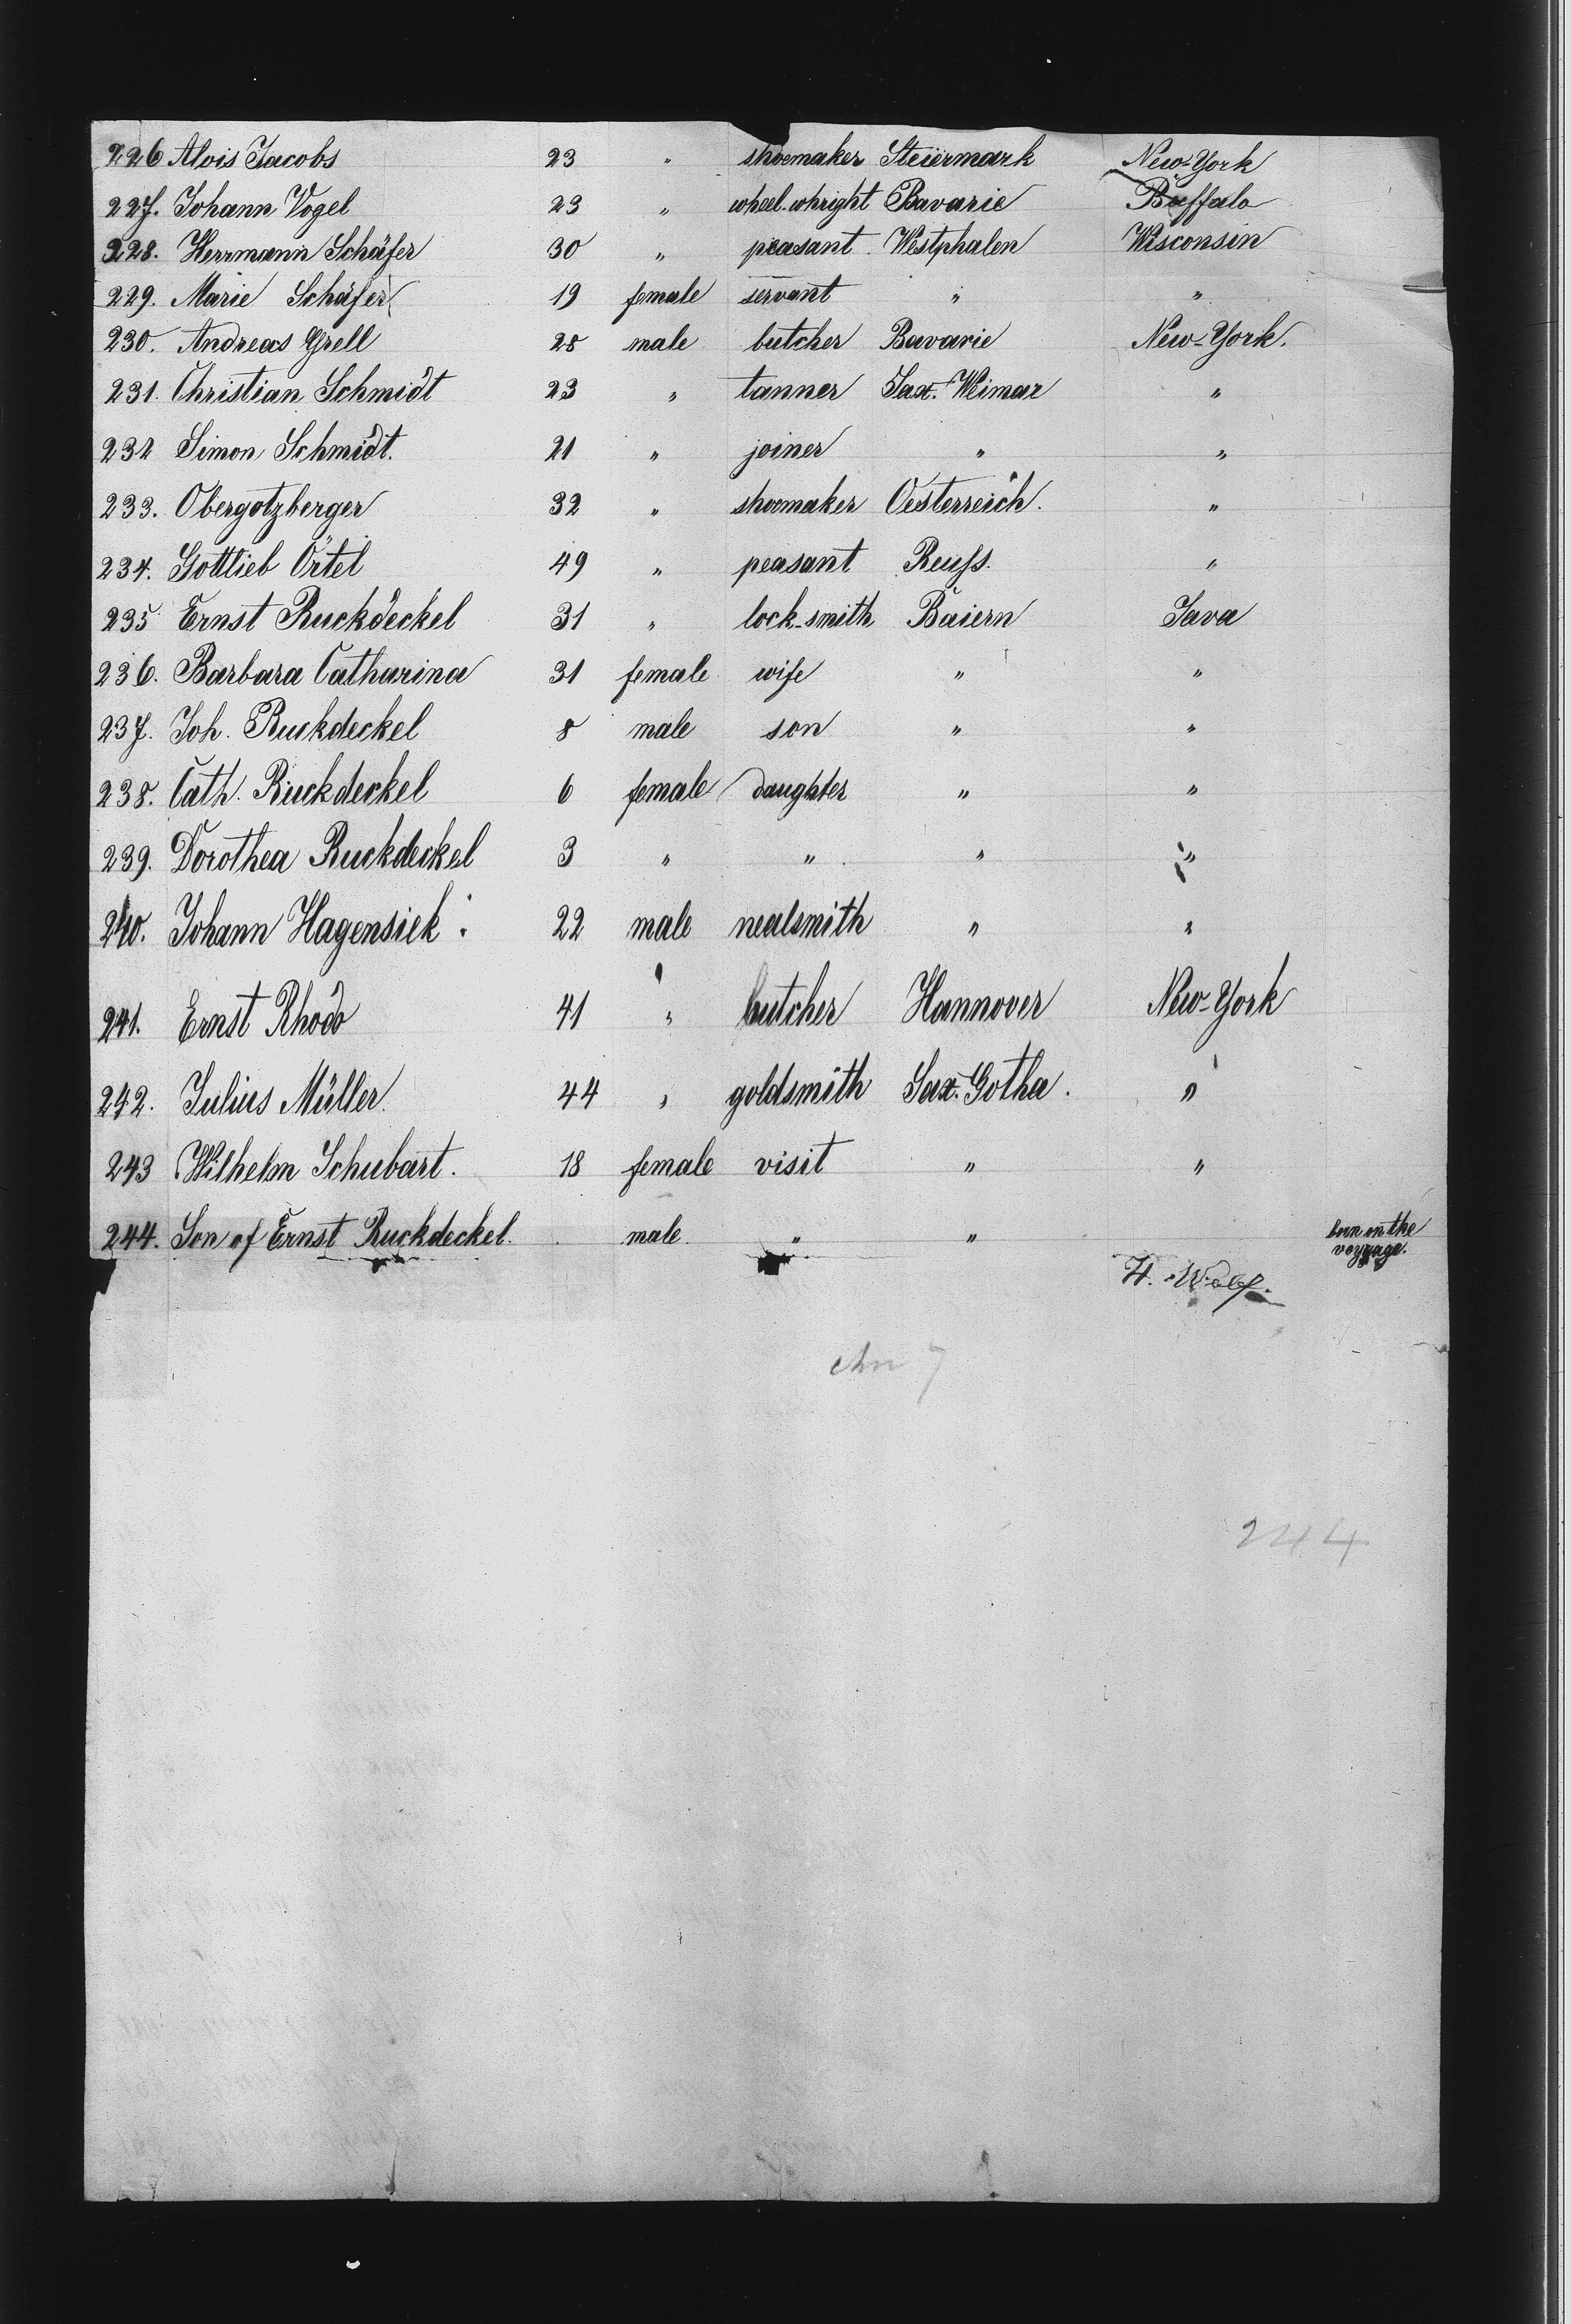 226 Alois Jacobs 23 " shoemaker Steiermark New-York
227. Johann Vogel 23 " wheel-whright Bavarie Buffalo
228. Herrmann Schäfer 30 " peasant Westphalen Wisconsin
229. Marie Schäfer 19 female servant " "
230. Andreas Grell 28 male butcher Bavarie New-York.
231. Christian Schmidt 23 " tanner Sax. Weimar "
232 Simon Schmidt. 21 " joiner " "
233. Obergotzberger 32 " shoemaker Oesterreich. "
234. Gottlieb Örtel 49 " peasant Reuſs. "
235 Ernst Ruckdeckel 31 " lock-smith Baiern Java
236. Barbara Catharina 31 female wife " "
237. Joh. Ruckdeckel 8 male son " "
238. Cath. Ruckdeckel 6 female daughter " "
239. Dorothea Ruckdeckel 3 " " " "
240. Johann Hagensiek 22 male nealsmith " "
241. Ernst Rhodo 41 " butcher Hannover New-York
242. Julius Müller. 44 " goldsmith Sax. Gotha. "
243 Wilhelm Schubart. 18 female visit " "
244. Son of Ernst Ruckdeckel. male. " " born on the
voyage.
H. Wolf.
244